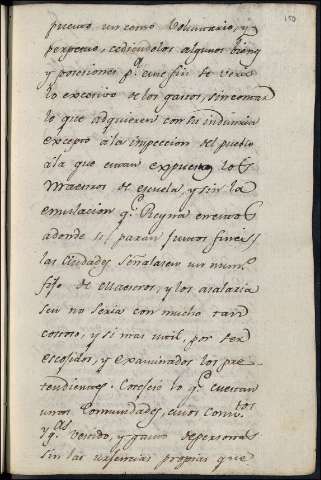 150
un como Voluntario, y
perpetuo, cediendolos algunos bienes
y posesiones pª. este fin se veria
lo excesivo de los gastos, sin contar
lo que adquieren con su industria
excepto á la inspeccion del pueblo
á la que estan expuestos los
Maestros de escuela, y sin la
emulacion qᵉ. Reyna en estos
adonde si paran
las Ciudades señalasen un numº.
fijo de Maestros, y los asalaria
sen no seria con mucho tan
costoso, y si mas util, por ser
escojidos, y examinados los pre-
tendientes. Cotejese lo qᵉ. cuestan
unas Comunidades, cuios
vestido, y gasto de personas
sin las urgencias propias que